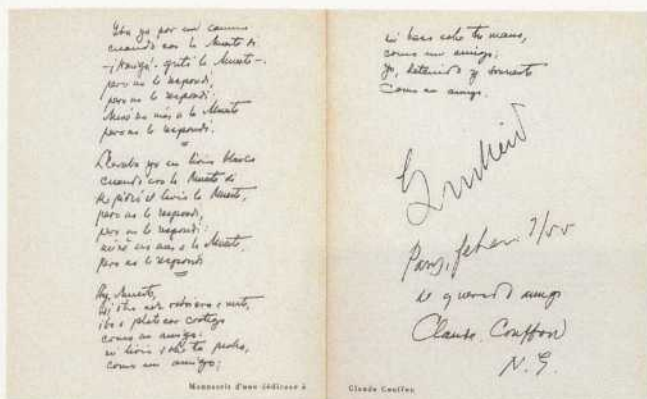 Iba yo por un camino
cuando con la Muerte di.
—¡Amigo!— gritó la Muerte—.
pero no le respondí,
pero no le respondí:
miré no más a la Muerte
pero no le respondí.
Llevaba yo un lirio blanco
cuando con la Muerte di.
Me pidió el lirio la Muerte,
pero no le respondí,
pero no le respondí:
miré no más a la Muerte,
pero no le respondí
Ay, Muerte,
si otra vez volviera a verte,
iba a platicar contigo
como un amigo:
mi lirio sobre tu pecho,
como un amigo;
mi beso sobre tu mano,
como un amigo;
yo, detenido y sonriente
como un amigo.
Guillén
Paris, 7/55
querido amigo
Claude Couffon
N. G.
Manuscrit d'une dédicace à Claude Couffon